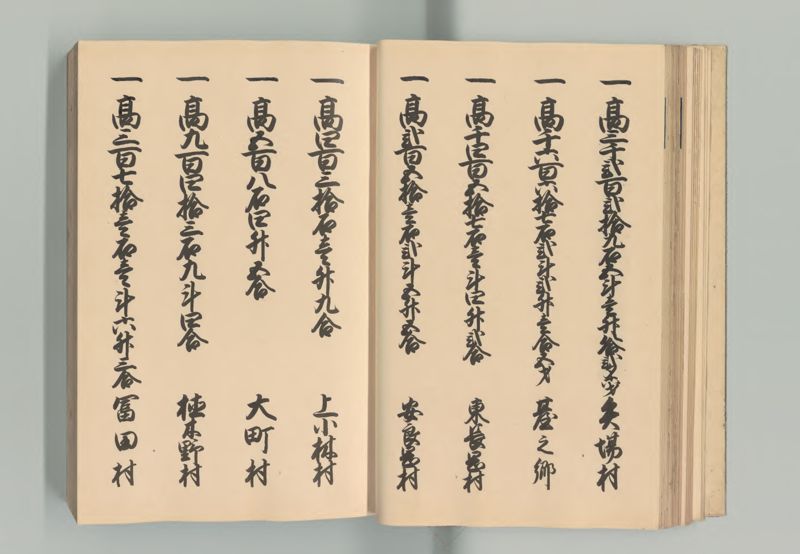 一 高三千弐百弐拾九石五斗壱升八合弐夕 矢場村
一 高千六百六拾七石弐斗弐升壱合五夕 台之郷
一 高千四百五拾七石壱斗四升弐合 東長岡村
一 高弐百五拾壱石弐斗五升五合 安良岡村
一 高四百三拾石壱升九合 上小林村
一 高五百八石四升五合 大町村
一 高九百四拾三石九斗四合 植木野村
一 高三百七拾壱石壱斗六升三合 冨田村